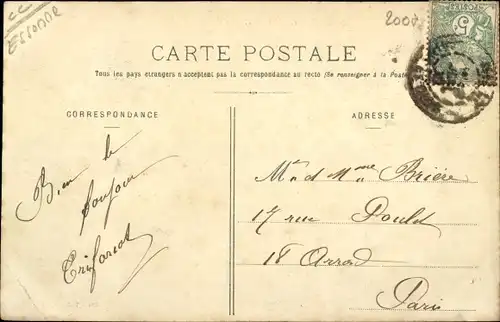 CC
ESSONNE
2000
CARTE POSTALE
Tous les pays étrangers n'acceptent pas la correspondance au recto (Se renseigner à la Poste)
CORRESPONDANCE
ADRESSE
Bien le
bonjour
Mr et Mme Brière
17 rue
18 Arrond
Paris